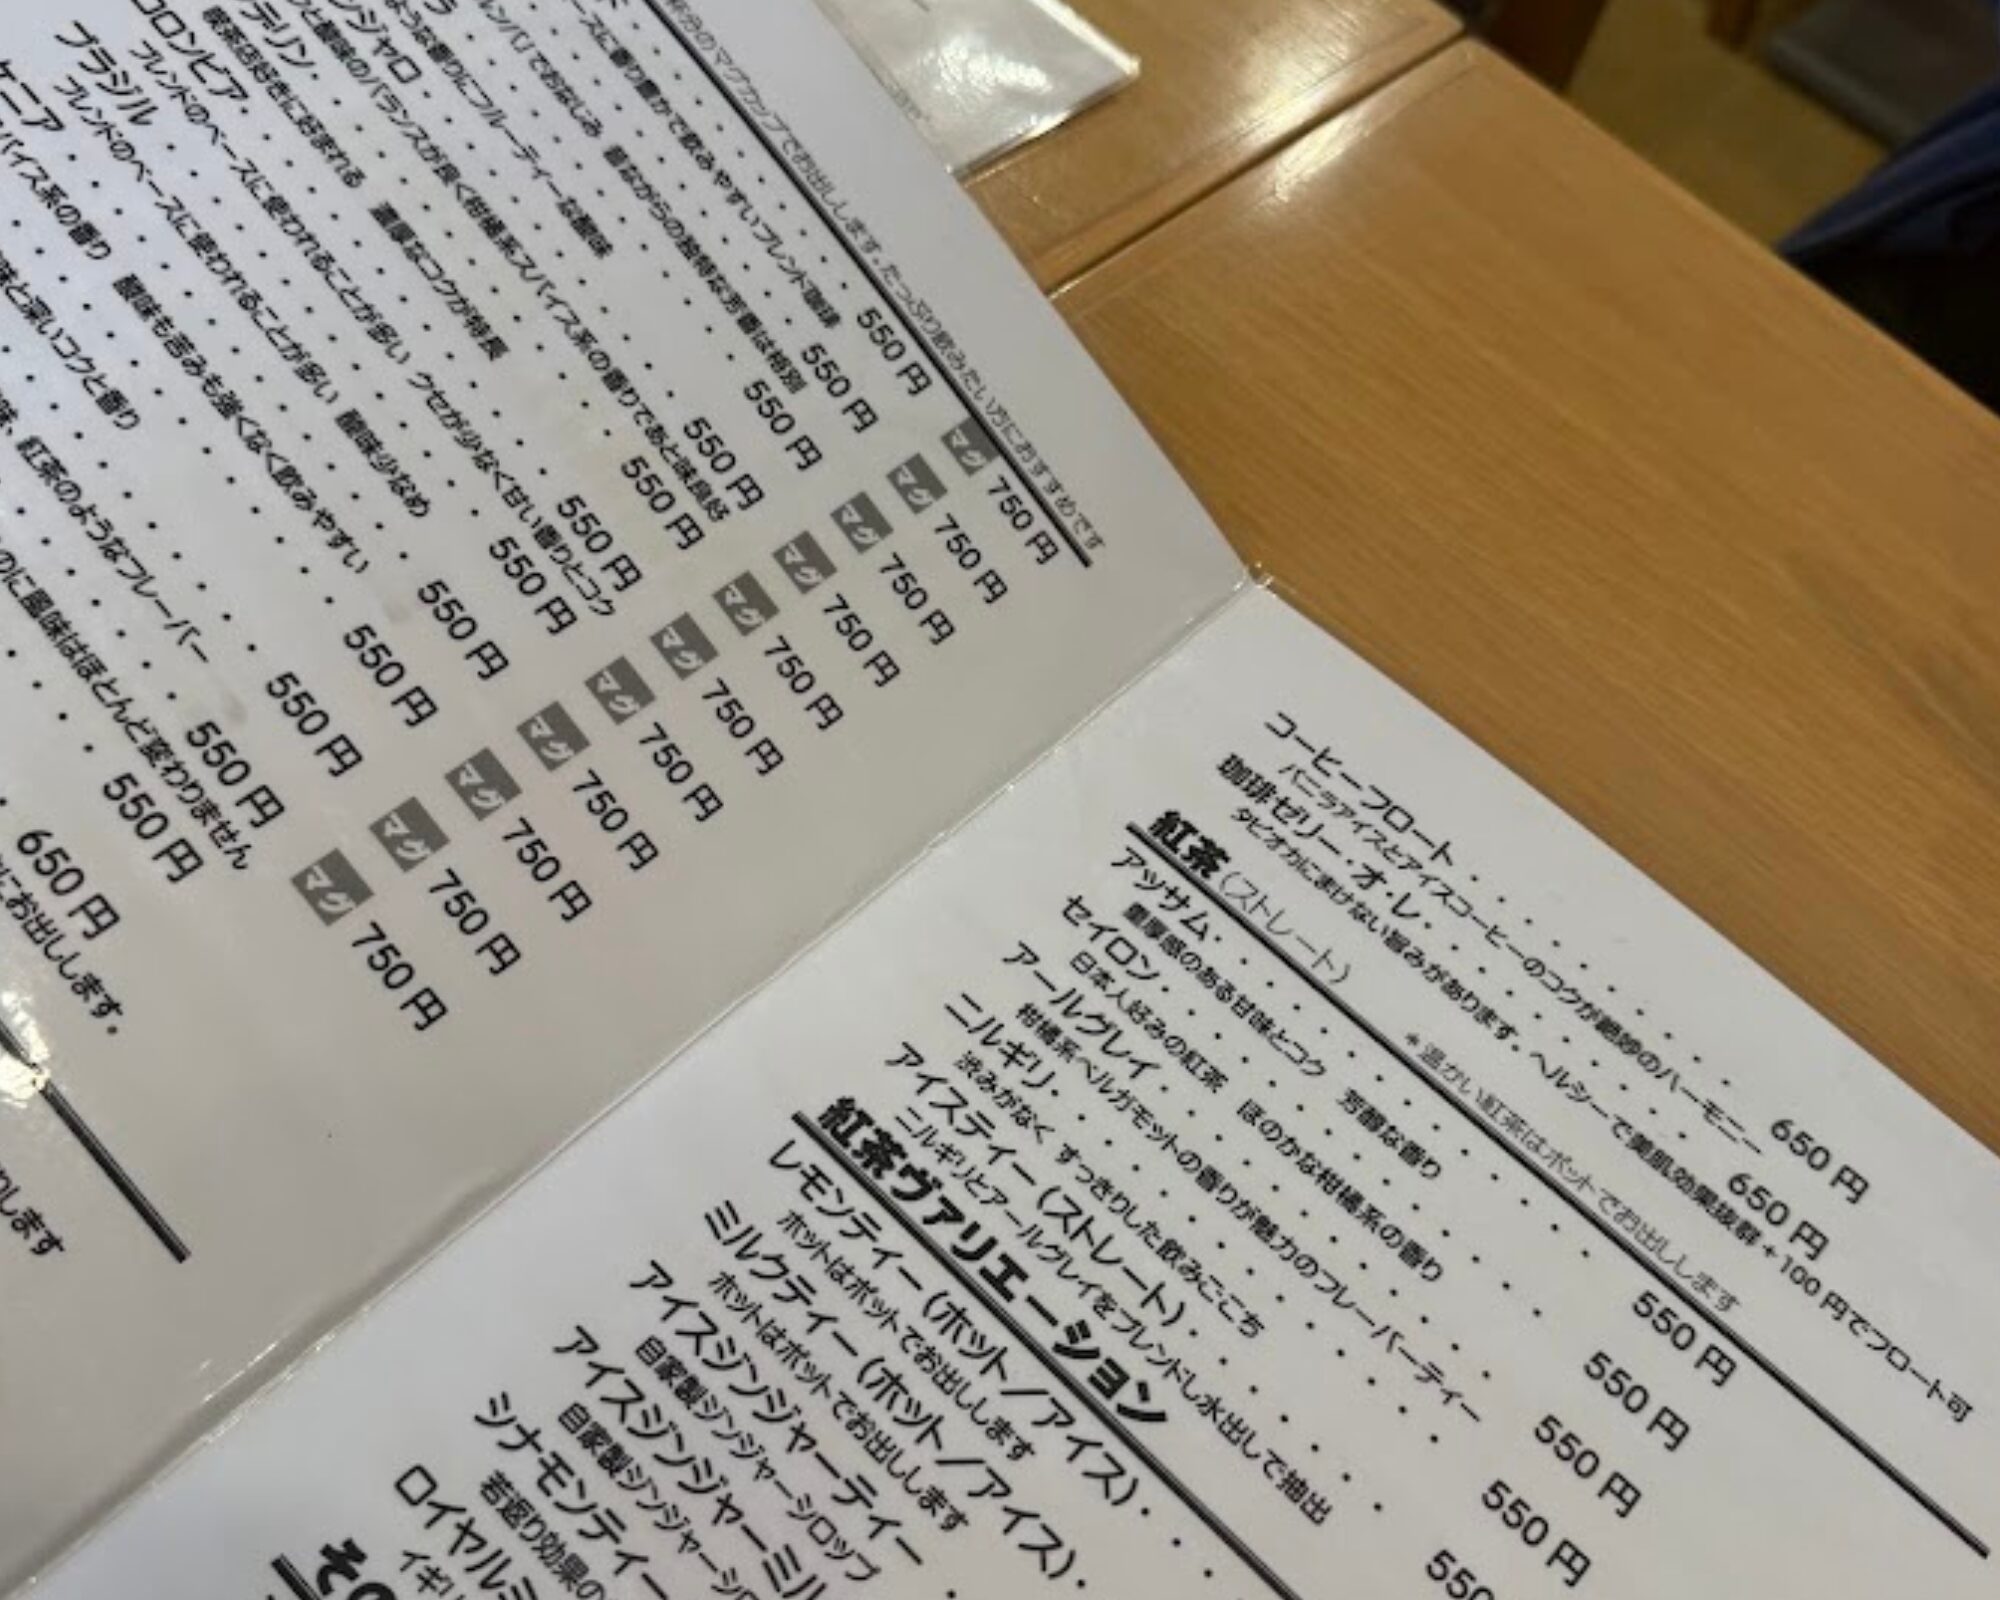 杯分のマグカップでお出しします。たっぷり飲みたい方におすすめです
550円 マグ 750円
ースに香り豊かで飲みやすいブレンド珈琲
550円 マグ 750円
ルンバ」でおなじみ 昔ながらの独特な芳香は格別
550円 マグ 750円
ような香りにフルーティーな酸味
ンジャロ 550円 マグ 750円
と酸味のバランスが良く柑橘系スパイス系の香りであと味良好
デリン 550円 マグ 750円
喫茶店好きに好まれる 濃厚なコクが特長
コロンビア 550円 マグ 750円
ブレンドのベースに使われることが多い クセが少なく甘い香りとコク
ブラジル 550円 マグ 750円
ブレンドのベースに使われることが多い 酸味少なめ
ケニア 550円 マグ 750円
パイス系の香り 酸味も苦みも強くなく飲みやすい
550円 マグ 750円
味と深いコクと香り
550円 マグ 750円
味、紅茶のようなフレーバー
550円 マグ 750円
のに風味はほとんど変わりません
550円
650円
にお出しします。
します
コーヒーフロート 650円
バニラアイスとアイスコーヒーのコクが絶妙のハーモニー
珈琲ゼリー・オ・レ 650円
タピオカにまけない旨みがあります。ヘルシーで美肌効果抜群+100円でフロート可
紅茶(ストレート) *温かい紅茶はポットでお出しします
アッサム 550円
重厚感のある甘味とコク 芳醇な香り
セイロン 550円
日本人好みの紅茶 ほのかな柑橘系の香り
アールグレイ 550円
柑橘系ベルガモットの香りが魅力のフレーバーティー
ニルギリ 550円
渋みがなく すっきりした飲みごこち
アイスティー(ストレート) 550
ニルギリとアールグレイをブレンドし水出しで抽出
紅茶ヴァリエーション
レモンティー(ホット/アイス)
ホットはポットでお出しします
ミルクティー(ホット/アイス)
ホットはポットでお出しします
アイスジンジャーティー
自家製ジンジャーシロップ
アイスジンジャーミル
自家製ジンジャーシロ
シナモンティー
若返り効果の
ロイヤルミ
イギリ
その